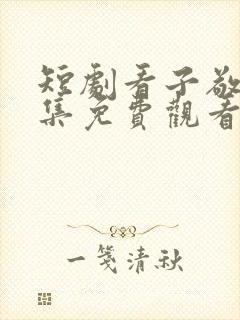 短劇看子敬
集免費觀看
一笺清秋